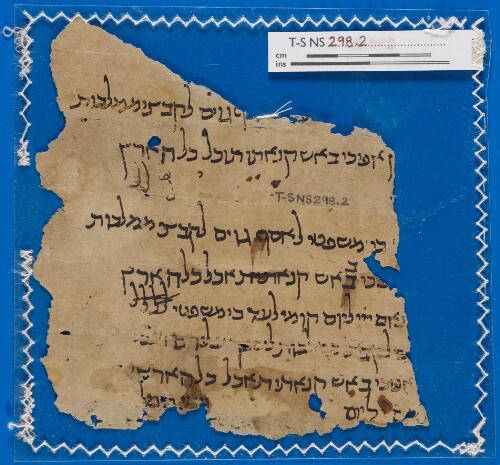 T-S NS 298.2
cm
ins
גוים לקבצי ממלכות
ן אפי כי באש קנאתי תאכל כל הארץ
T-S NS 298.2
כי משפטי לאסף גוים לקבצי ממלכות
אפי כי באש קנאתי תאכל כל הארץ
נאם ייי ליום קומי לעד כי משפטי
לקבצי
אפי כי באש קנאתי תאכל כל הארץ
ליום